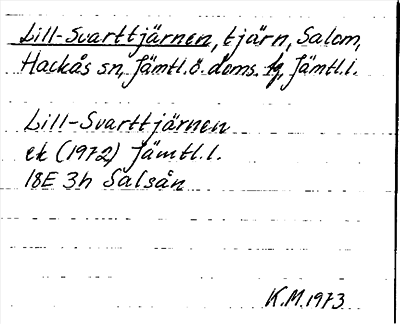 Lill-Svarttjärnen, tjärn, Salom,
Hackås sn, Jämtl.ö. doms. tg, Jämtl.l.
Lill-Svarttjärnen
ek (1972) Jämtl.l.
18E 3h Salsån
K.M.1973